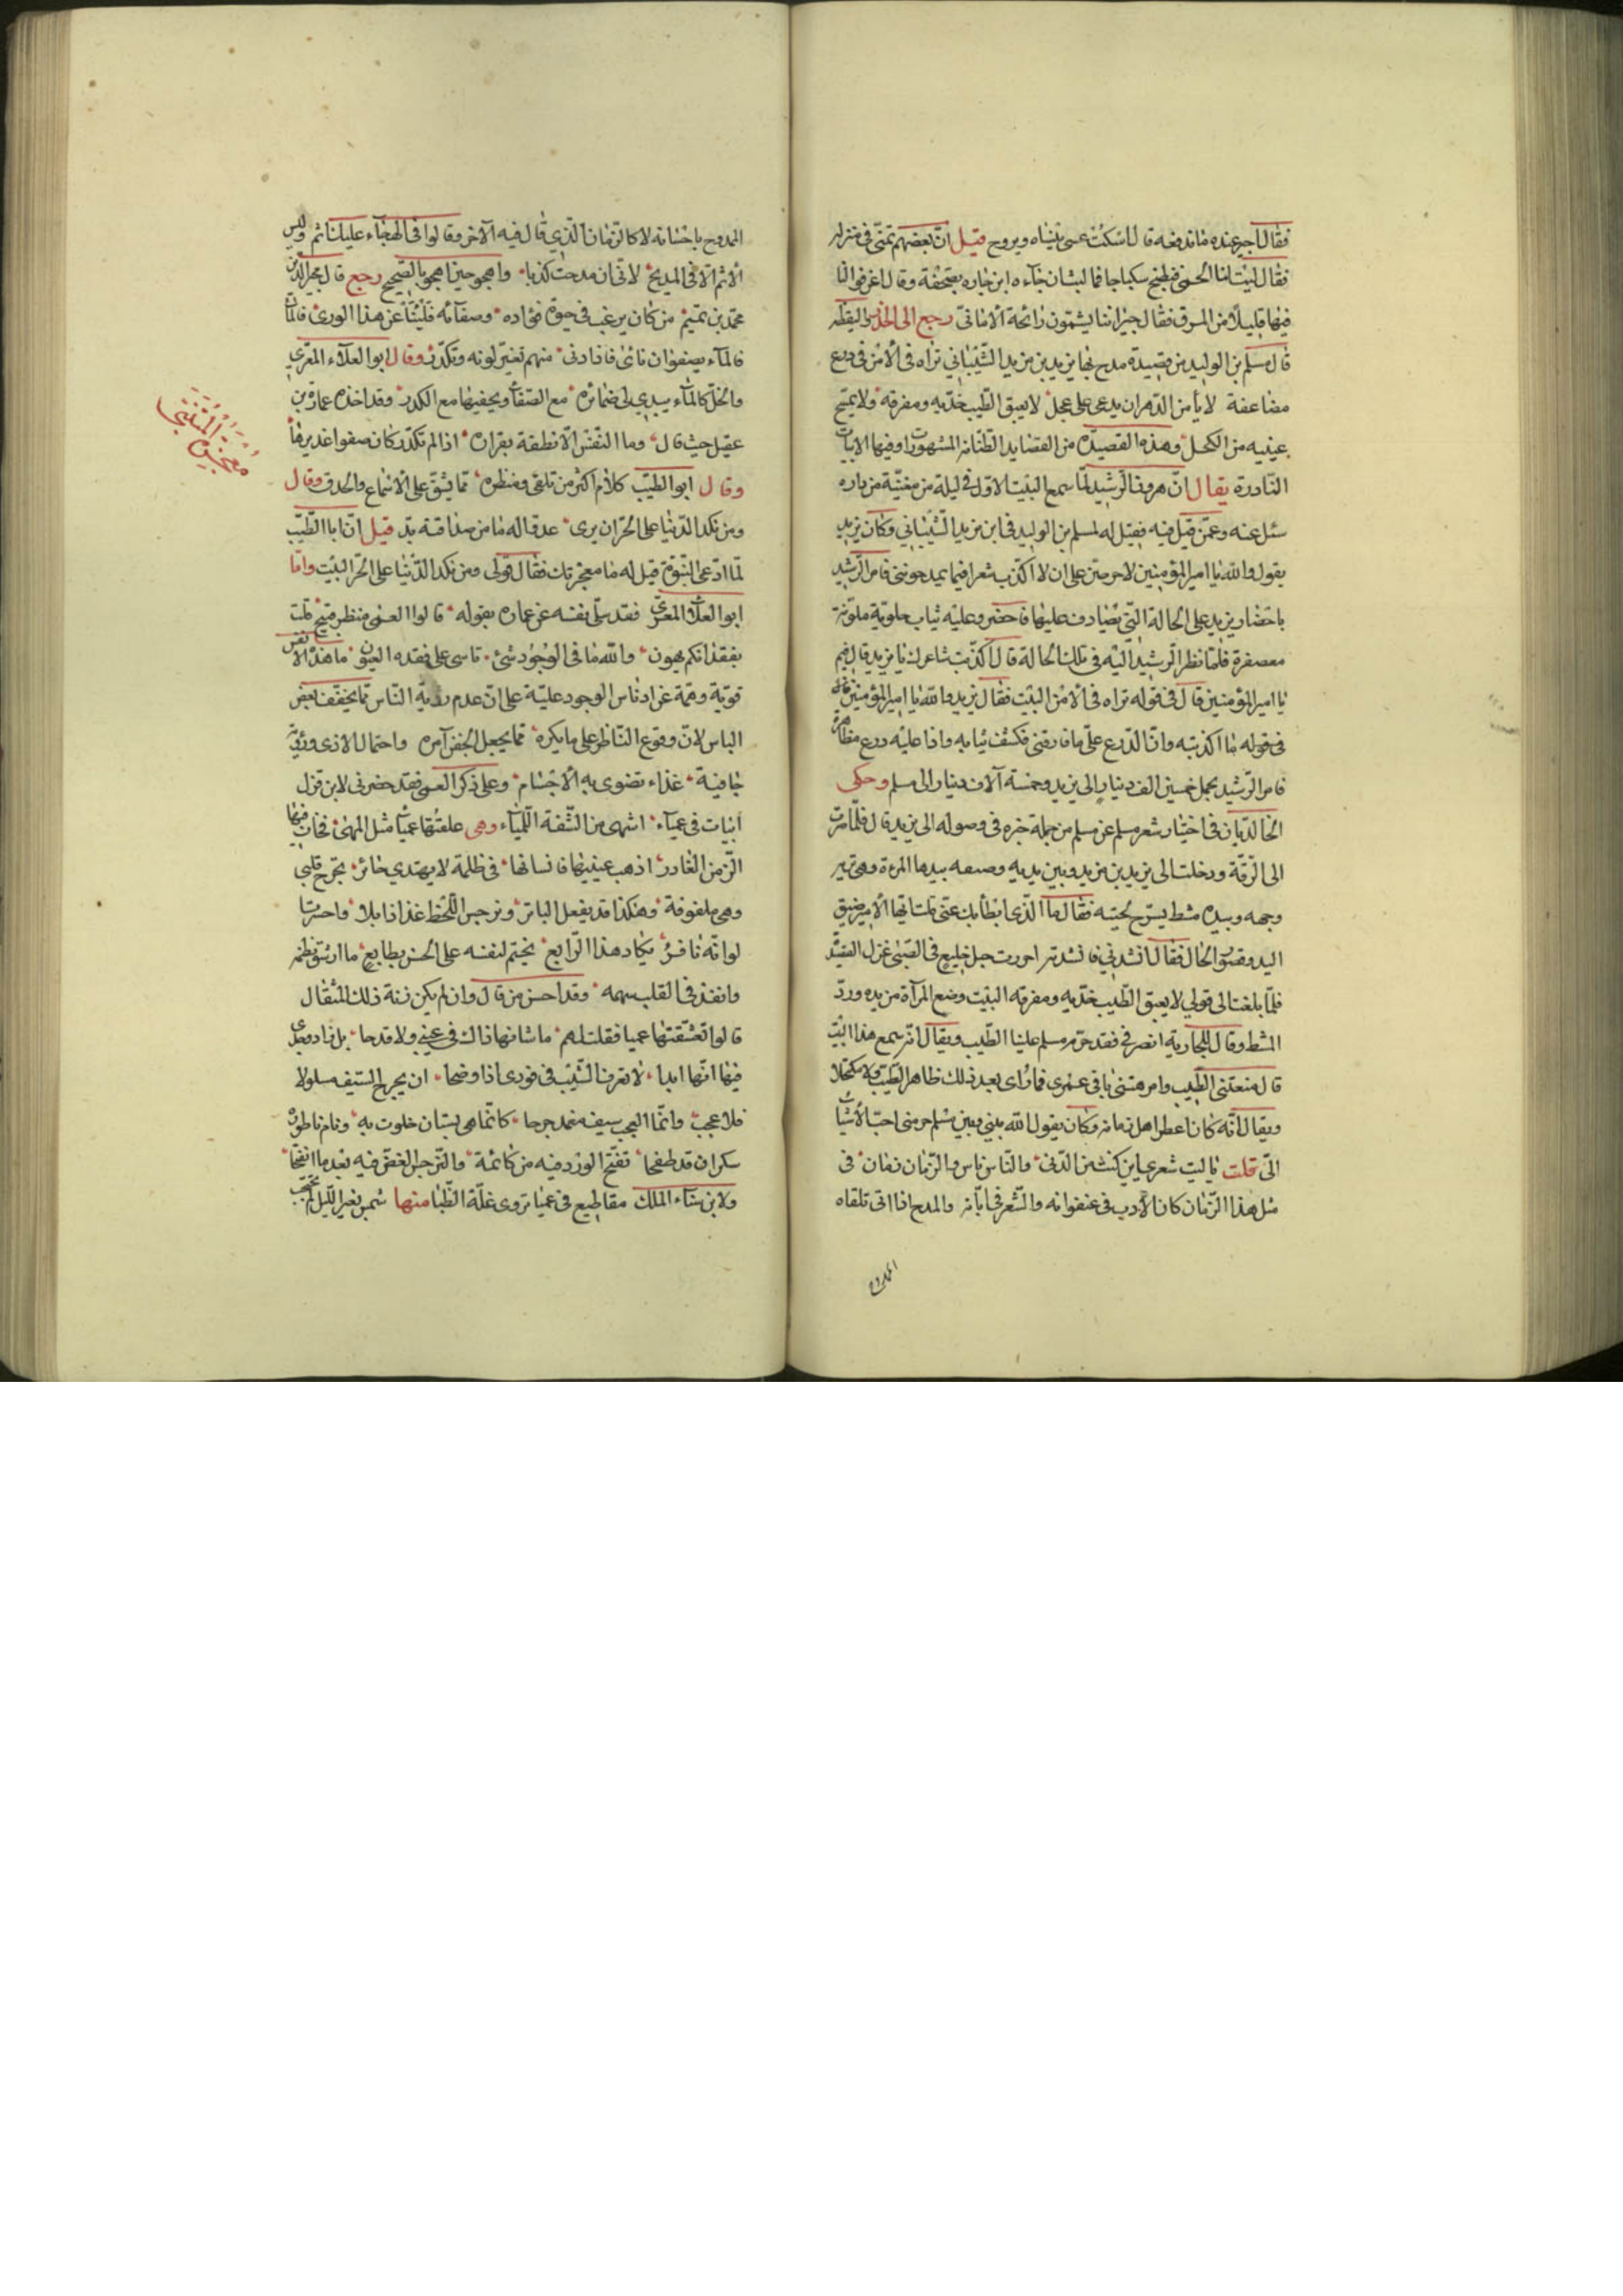 فقال اجير عنده ما ندفعه قال اسكت عسى ينساه ويروح قيل ان بعضهم تمنى في منزله
فقال ليت لنا لحما فنطبخ سكباجا فما لبث ان جاءه ابن جاره بصحفة وقال اغرفوا لنا
فيها قليلا من المرق فقال جيراننا يشمون رائحة الاماني رجع الى الحذر واليقظة
قال مسلم بن الوليد من قصيدة مدح بها يزيد بن مزيد الشيباني تراه في الامن في درع
مضاعفة لا يأمن الدهر ان يدعى على عجل لا يعبق الطيب خديه ومفرقه ولا يمسح
عينيه من الكحل وهذه القصيدة من القصايد الطنانة المشهورة وفيها الابيات
النادرة يقال ان هرون الرشيد لما سمع البيت الاول في ليلة من مغنية من داره
سئل عنه وعمن قيل فيه فقيل له لمسلم بن الوليد في ابن مزيد الشيباني وكان يزيد
يقول والله يا امير المؤمنين لاحرمتن على ان لا اكذب شعرا فيما يمدحونني فامر الرشيد
باحضار يزيد على الحالة التي يصادف عليها فاحضر وعليه ثياب خلوقية ملونة
معصفرة فلما نظر الرشيد اليه في تلك الحالة قال اكذبت شاعرك يا يزيد قال فيم
يا امير المؤمنين قال في قوله تراه في الامن البيت فقال يزيد والله يا امير المؤمنين
في قوله ما اكذبته وان الدرع على ما فارقتني فكشف ثيابه واذا عليه درع مظاهرة
فامر الرشيد بحمل خمسين الف دينار الى يزيد وخمسة آلاف دينار الى مسلم وحكى
الخالديان في اختيار شعر مسلم عن مسلم من جملة خبره في وصوله الى يزيد قال فلما صرت
الى الرقة ودخلت الى يزيد بن مزيد وبين يديه وصيفة بيدها المرآة وهي تريه
وجهه وبيده مشط يسرح لحيته فقال ما الذي ابطأ بك عني قلت ايها الامير ضيق
اليد وقصور الحال فقال انشدني فانشدته اجررت حبل خليع في الصبى غزل القصيدة
فلما بلغت الى قولي لا يعبق الطيب خديه ومفرقه البيت وضع المرآة من يده ورد
المشط وقال للجارية انصرفي فقد حرم مسلم علينا الطيب ويقال انه سمع هذا البيت
قال منعتني الطيب وامر هتني باقي عمري فما رأى بعد ذلك ظاهر الطيب ولا مكتحلا
ويقال انه كان اعطر اهل زمانه وكان يقول الله بيني وبين مسلم حرمني احب الاشياء
الي قلت يا ليت شعري اين كنت من الدنى والناس ناس والزمان زمان في
مثل هذا الزمان كان الأدب في عنفوانه والشعر في ابانه والمدح اذا اتى تلقاه
الممدوح
الممدوح باحسانه لا كالزمان الذي قال فيه الآخر وقالوا في الهجاء عليك اثم وليس
الاثم الا في المديح لاني ان مدحت كذبا واهجو حين اهجو بالصحيح رجع قال مجير الدين
محمد بن تميم من كان يرغب في حيوة فؤاده وصفائه فلينأ عن هذا الورى
فالماء يصفو ان نأى فاذا دنى منهم تغير لونه وتكدر وقال ابو العلاء المعري
والخل كالماء يبدي لي ضمائره مع الصفاء ويخفيها مع الكدر وقد اخذه عمارة بن
عقيل حيث قال وما النفس الا نطفة بقرارة اذا لم تكدر كان صفوا غديرها
وقال ابو الطيب كلام اكثر من تلقى ومنظره مما يشق على الاسماع والحدق وقال
ومن نكد الدنيا على الحر ان يرى عدوا له ما من صداقته بد قيل ان ابا الطيب
لما ادعى النبوة قيل له ما معجزتك فقال قولي ومن نكد الدنيا على الحر البيت واما
ابو العلاء المعري فقد سلى نفسه عن عماه بقوله قالوا العمى منظر قبيح قلت
بفقدانكم يهون والله ما في الوجود شئ تاسى على فقده العيون ما هذه الا نفس
قوية وهمة عن ادناس الوجود علية على ان عدم رؤية الناس مما يخفف بعض
الباس لان وقوع الناظر على ما يكره مما يجعل الجفن آمره واحتمال الاذى ورؤية
جانيه غذاء تضوى به الاجسام وعلى ذكر العمى فقد حضرني لابن قزل
ابيات في عمياء اشهى من الشفة اللمياء وهي علقتها عمياء مثل المهى فخان فيها
الزمن الغادر اذهب عينيها فانسانها في ظلمة لا يهتدي حائر تجرح قلبي
وهي ملفوفة وهكذا قد يفعل الباتر ونرجس اللحظ غدا ذابلا واحسرتا
لو انه ناضر يكاد هذا الرابع يختم لنفسه على الحسن بطابع ما ارشق نظمه
وانفذ في القلب سهمه وقد احسن من قال وان لم يكن زنة ذلك المثقال
قالوا تعشقتها عميا فقلت لهم ما شانها ذاك في عيني ولا قدحا بل زاد وجدي
فيها انها ابدا لا تعرف الشيب في فودي اذا وضحا ان يجرح السيف مسلولا
فلا عجب وانما العجب سيف مغمد جرحا كانما هي بستان خلوت به ونام ناطوره
سكران قد طفحا تفتح الورد فيه من كمائمه والنرجس الغض فيه بعد ما انفتحا
ولابن سناء الملك مقاطيع في عميا تروى غلة الظما منها شمس بغير الليل لم تحجب
معجزة المتنبي